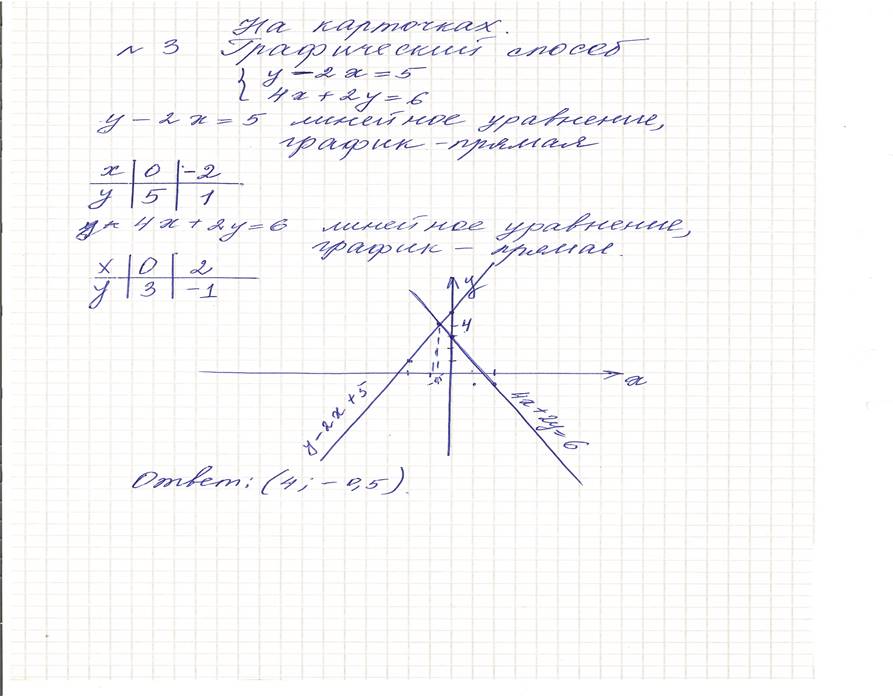 На карточках.
№ 3 Графический способ
{ y - 2x = 5
4x + 2y = 6
y - 2x = 5 линейное уравнение,
график - прямая
x | 0 | -2
y | 5 | 1
4x + 2y = 6 линейное уравнение,
график - прямая.
x | 0 | 2
y | 3 | -1
y
4
x
y - 2x + 5
4x + 2y = 6
Ответ: (4; - 0,5).